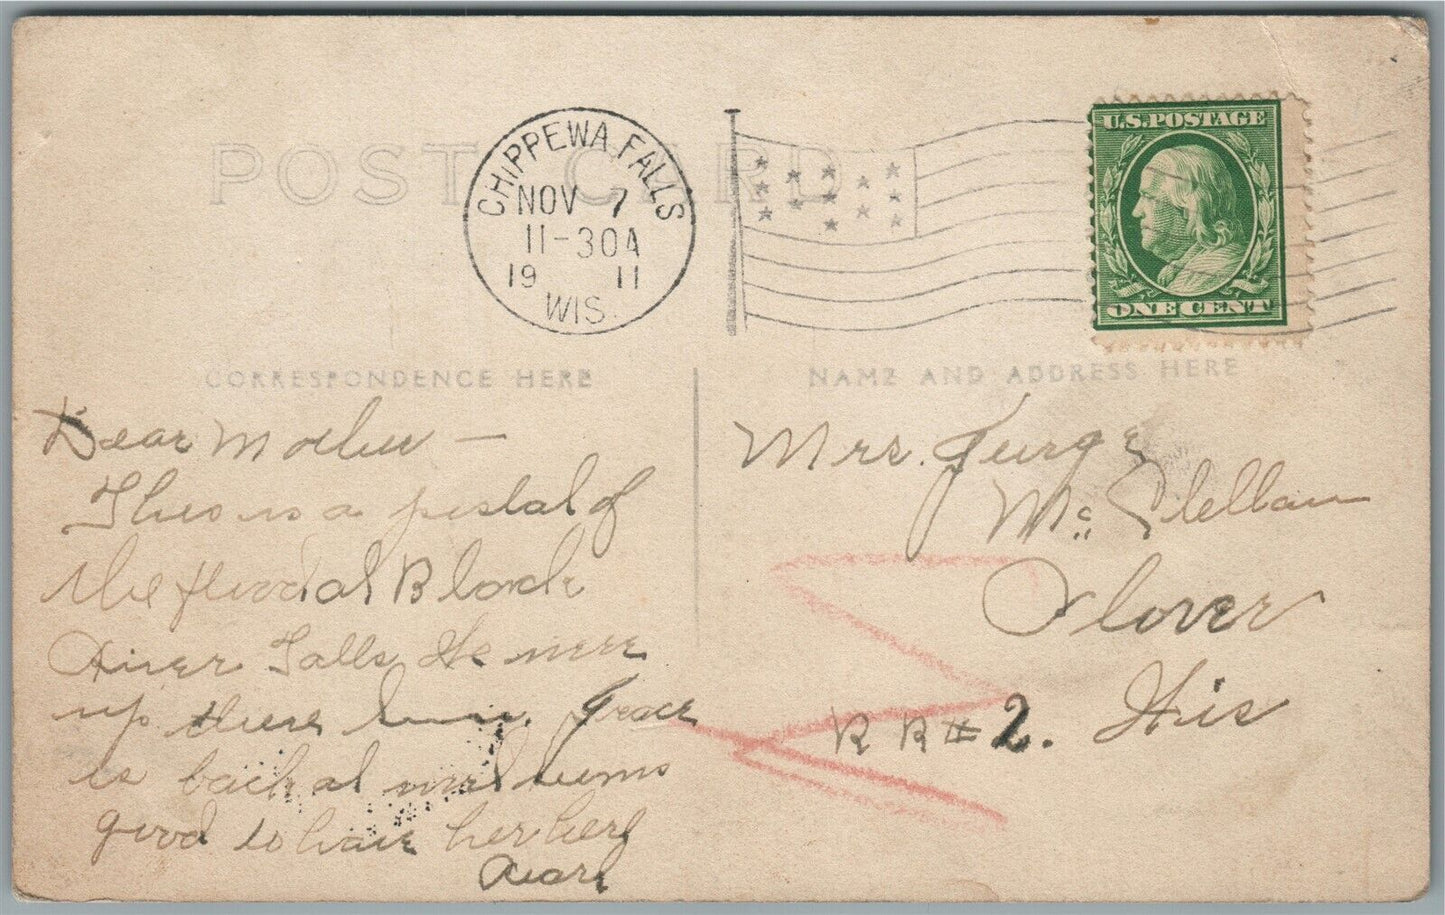 POST CARD
CHIPPEWA FALLS
NOV 7
11-30A
19 11
WIS.
U.S. POSTAGE
ONE CENT
CORRESPONDENCE HERE
NAME AND ADDRESS HERE
Dear Mother —
This is a postal of
the flood at Black
River Falls. We were
up there Sun. Grace
is back at seems
good to have her here
Pearl
Mrs. George
Mc Clellan
Plover
R R # 2. Wis